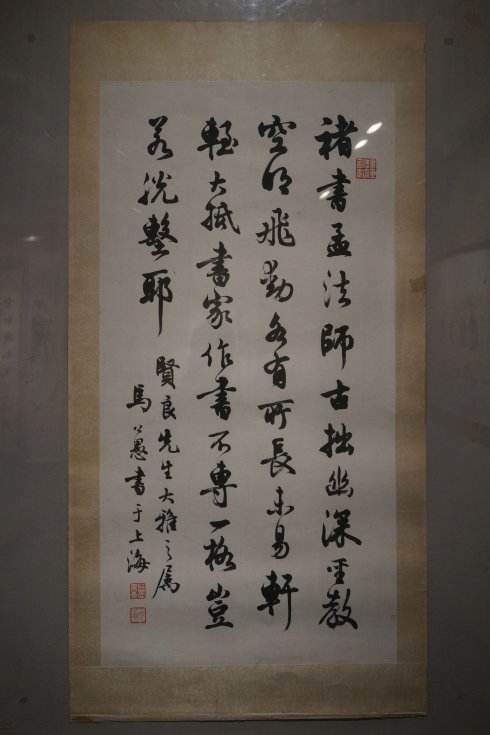 褚書孟法師古拙幽深聖教
空明飛動各有所長未易軒
輊大抵書家作書不專一格豈
若洗鑿耶
賢良先生大雅之屬
馬公愚書于上海